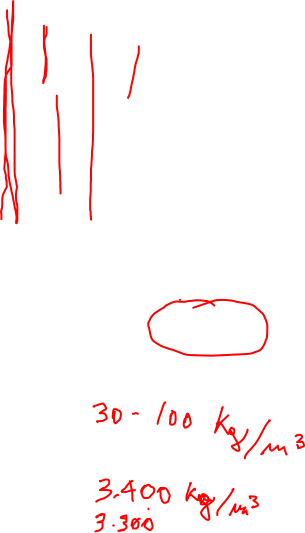 30 - 100 kg/m³
3.400 kg/m³
3.300